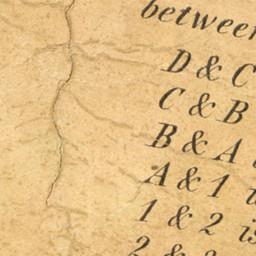 between
D & C
C & B
B & A
A & 1
1 & 2 is
2 &